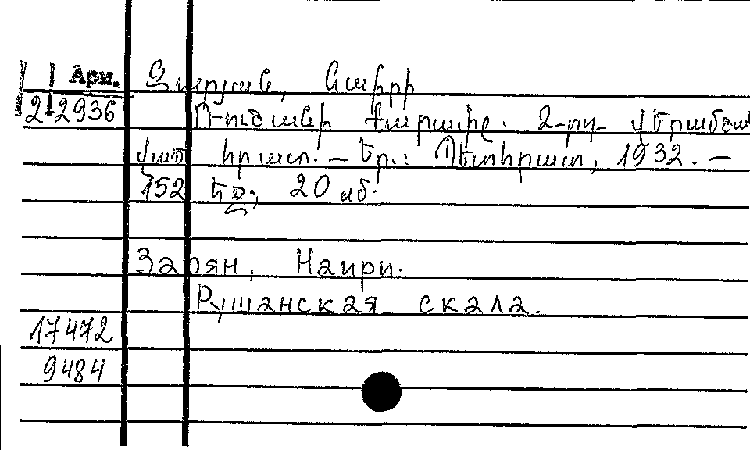 Арм. Զարյան, Նաիրի
2-2936 Ռուշանի քարափը. 2-րդ վերամշա
կված հրատ. — Եր.: Պետհրատ, 1932. —
152 եջ, 20 սմ.
Зарян, Наири.
Рушанская скала.
17472
9484